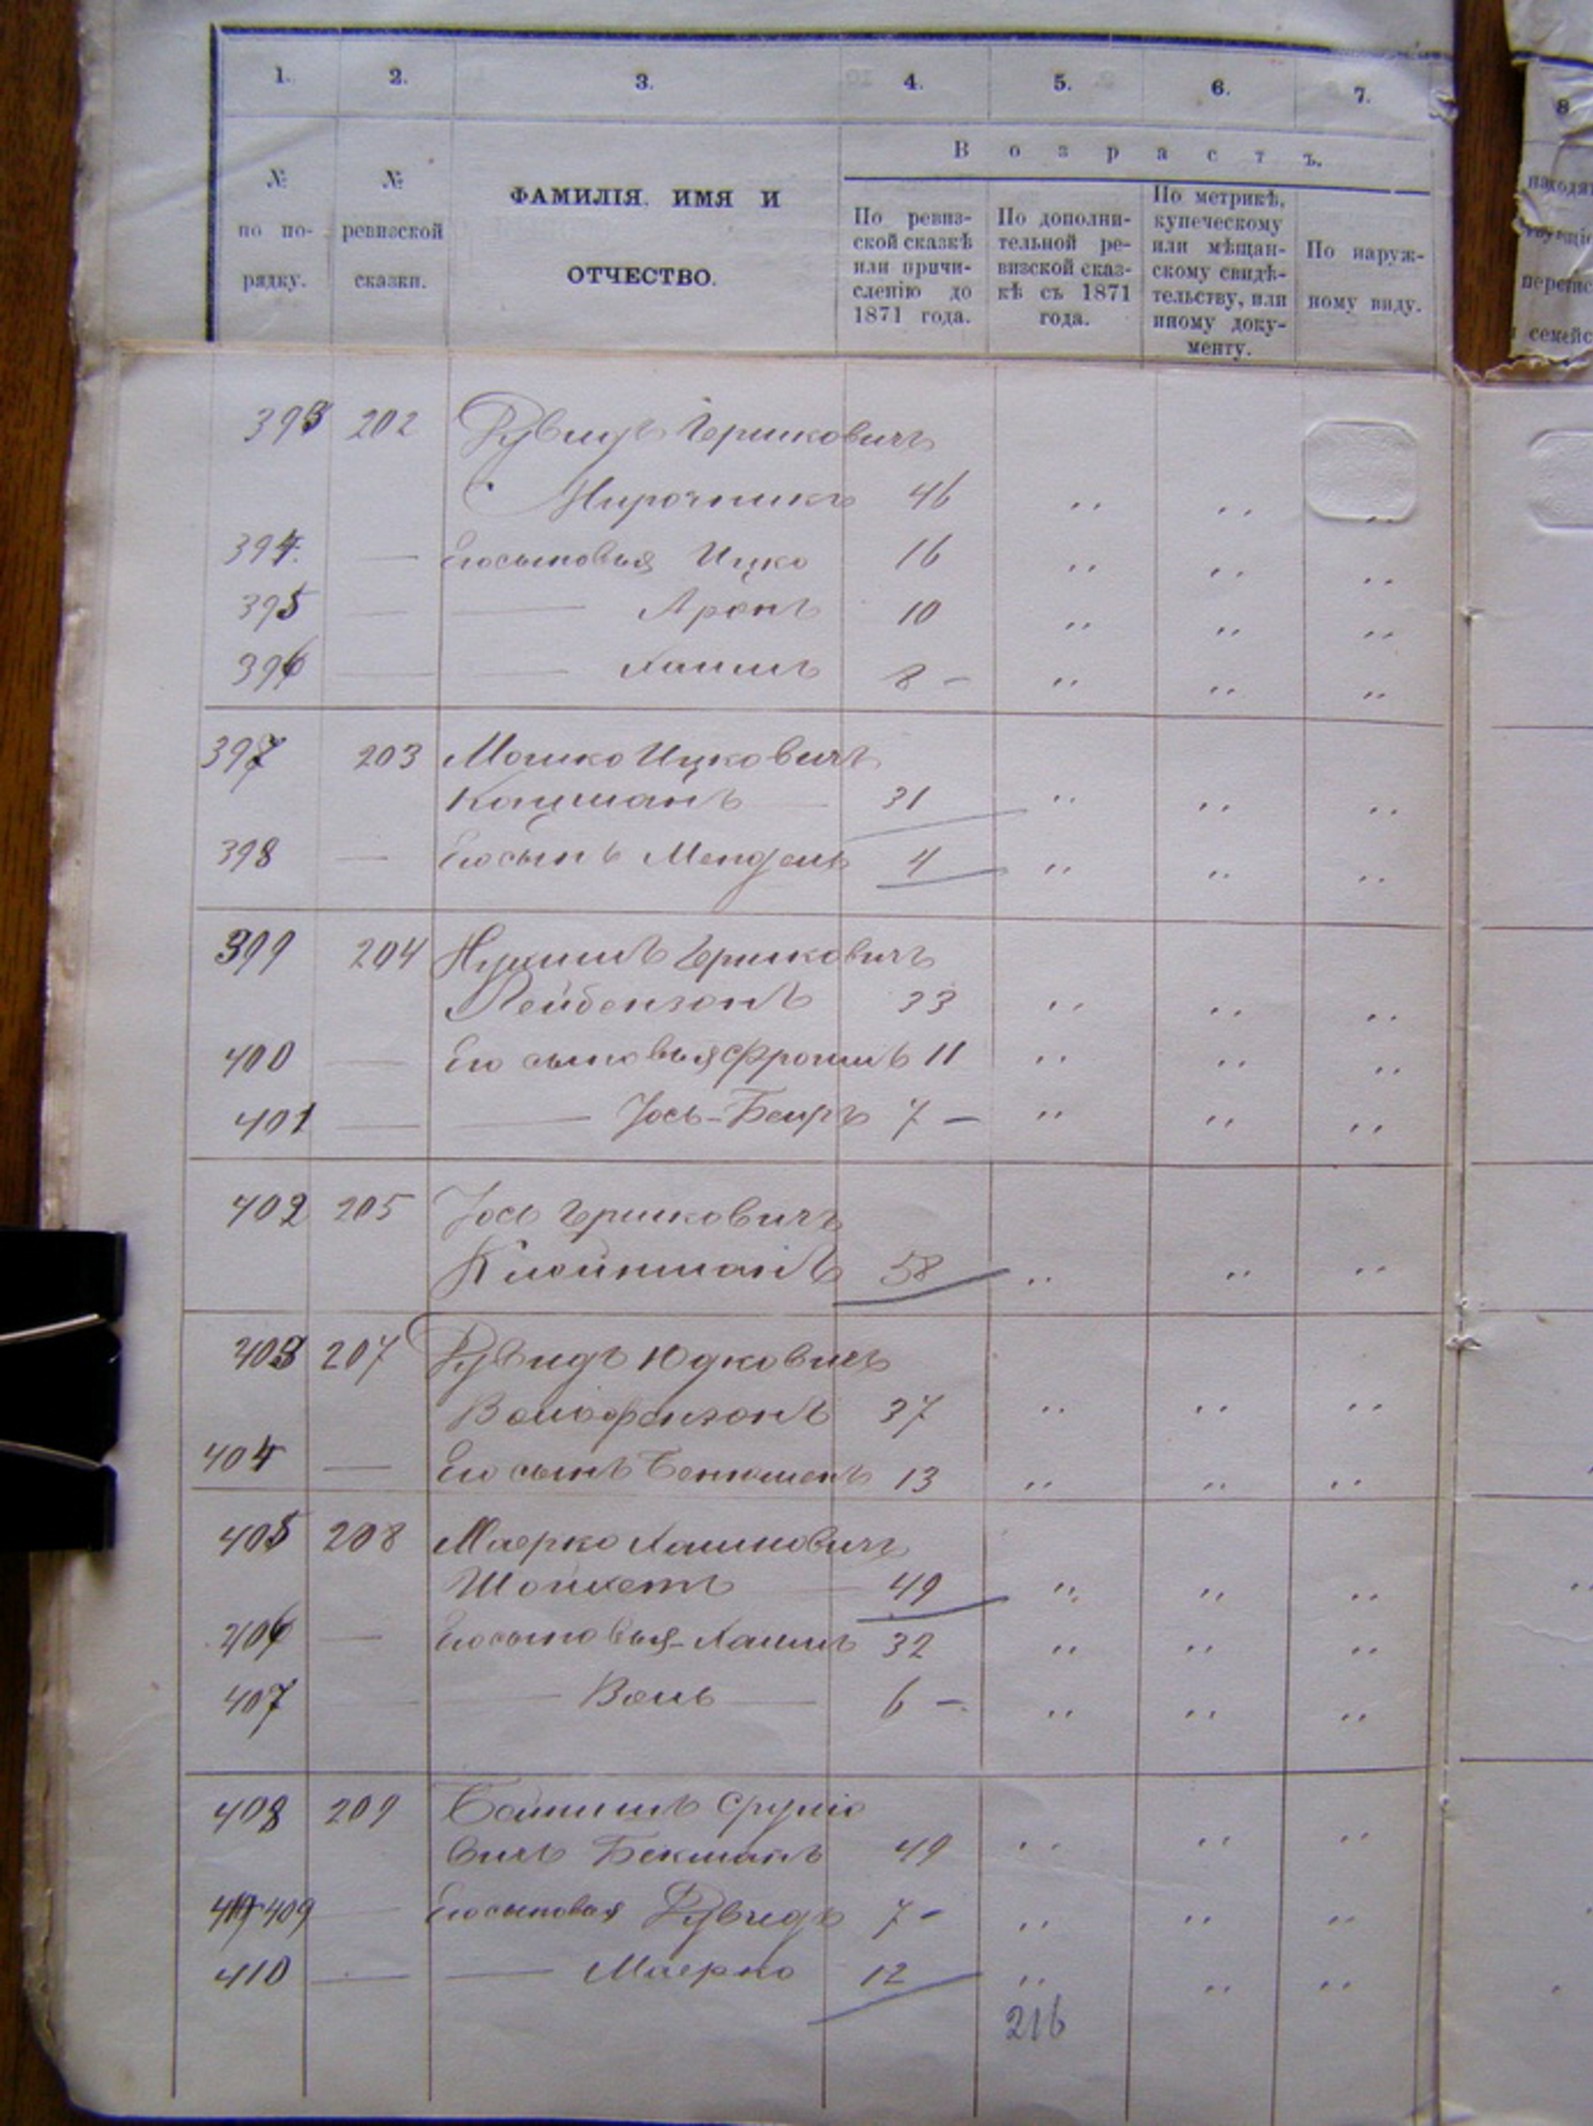 1. 2. 3. 4. 5. 6. 7.
8
В о з р а с т ъ.
№ по по-рядку.
№ ревизской сказки.
ФАМИЛІЯ. ИМЯ И
ОТЧЕСТВО.
По ревиз-
ской сказкѣ
или причи-
сленію до
1871 года.
По дополни-
тельной ре-
визской сказ-
кѣ съ 1871
года.
По метрикѣ,
купеческому
или мѣщан-
скому свидѣ-
тельству, или
иному доку-
менту.
По наруж-
ному виду.
393 202 Рувидъ Гершковичъ
46 " " "
394 — Его сыновья Ицко 16 " " "
395 — — Аронъ 10 " " "
396 — — Хаимъ 8 — " " "
397 203 Мошко Ицковичъ
Кацманъ — 31 " " "
398 — Его сынъ Мендель 4 " " "
399 204 Нухимъ Гершковичъ
Лейбензонъ 33 " " "
400 — Его сыновья Фроимъ 11 " " "
401 — — Іось-Беиръ 7 — " " "
402 205 Іось Гершковичъ
Клейнманъ 58 " " "
403 207 Рувидъ Юдковичъ
Вольфензонъ 37 " " "
404 — Его сынъ 13 " " "
405 208 Маерко Хаимовичъ
Шойхетъ — 49 " " "
406 — Его сыновья - Хаимъ 32 " " "
407 — — Воль — 6 — " " "
408 209 Срулiо
вичъ Бекманъ 49 " " "
409 — Его сыновья Рувидъ 7 — " " "
410 — — Маерко 12 " " "
216